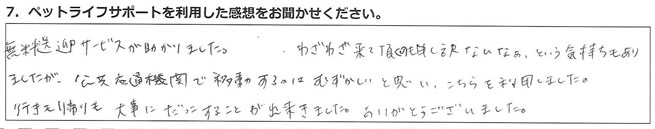 7. ペットライフサポートを利用した感想をお聞かせください。
無料送迎サービスが助かりました。 わざわざ来て頂くのも申し訳ないなぁ、という気持ちもあり
ましたが、公共交通機関で移動するのはむずかしいと思い、こちらを利用しました。
行きも帰りも大事にだっこすることが出来きました。ありがとうございました。